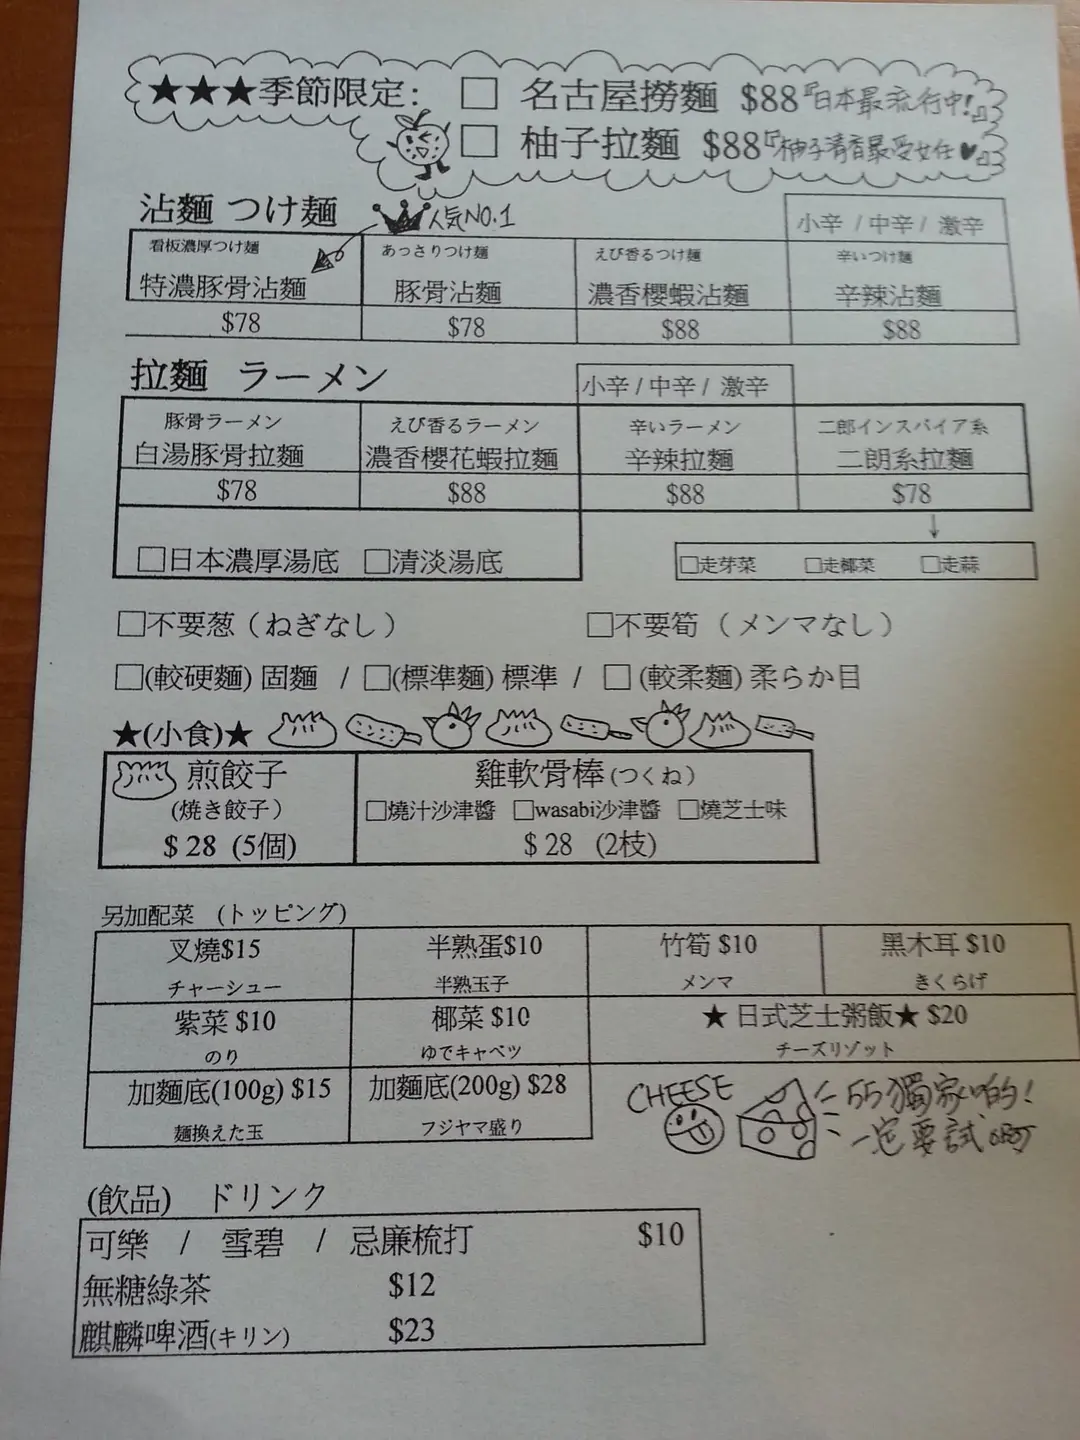 ★★★季節限定: □ 名古屋撈麵 $88『日本最流行中!』
□ 柚子拉麵 $88『柚子清香最受女仕♥』
沾麵 つけ麺 人気NO.1 小辛 / 中辛 / 激辛
看板濃厚つけ麺 あっさりつけ麺 えび香るつけ麺 辛いつけ麺
特濃豚骨沾麵 豚骨沾麵 濃香櫻蝦沾麵 辛辣沾麵
$78 $78 $88 $88
拉麵 ラーメン 小辛 / 中辛 / 激辛
豚骨ラーメン えび香るラーメン 辛いラーメン 二郎インスパイア系
白湯豚骨拉麵 濃香櫻花蝦拉麵 辛辣拉麵 二朗系拉麵
$78 $88 $88 $78
□日本濃厚湯底 □清淡湯底 □走芽菜 □走椰菜 □走蒜
□不要葱（ねぎなし） □不要筍（メンマなし）
□(較硬麵) 固麵 / □(標準麵) 標準 / □ (較柔麵) 柔らか目
★(小食)★
煎餃子 雞軟骨棒(つくね)
(焼き餃子) □燒汁沙津醬 □wasabi沙津醬 □燒芝士味
$ 28 (5個) $ 28 (2枝)
另加配菜 (トッピング)
叉燒$15 半熟蛋$10 竹筍 $10 黑木耳 $10
チャーシュー 半熟玉子 メンマ きくらげ
紫菜 $10 椰菜 $10 ★ 日式芝士粥飯★ $20
のり ゆでキャベツ チーズリゾット
加麵底(100g) $15 加麵底(200g) $28 CHEESE 獨家
麺換えた玉 フジヤマ盛り 一定要試
(飲品) ドリンク
可樂 / 雪碧 / 忌廉梳打 $10
無糖綠茶 $12
麒麟啤酒(キリン) $23